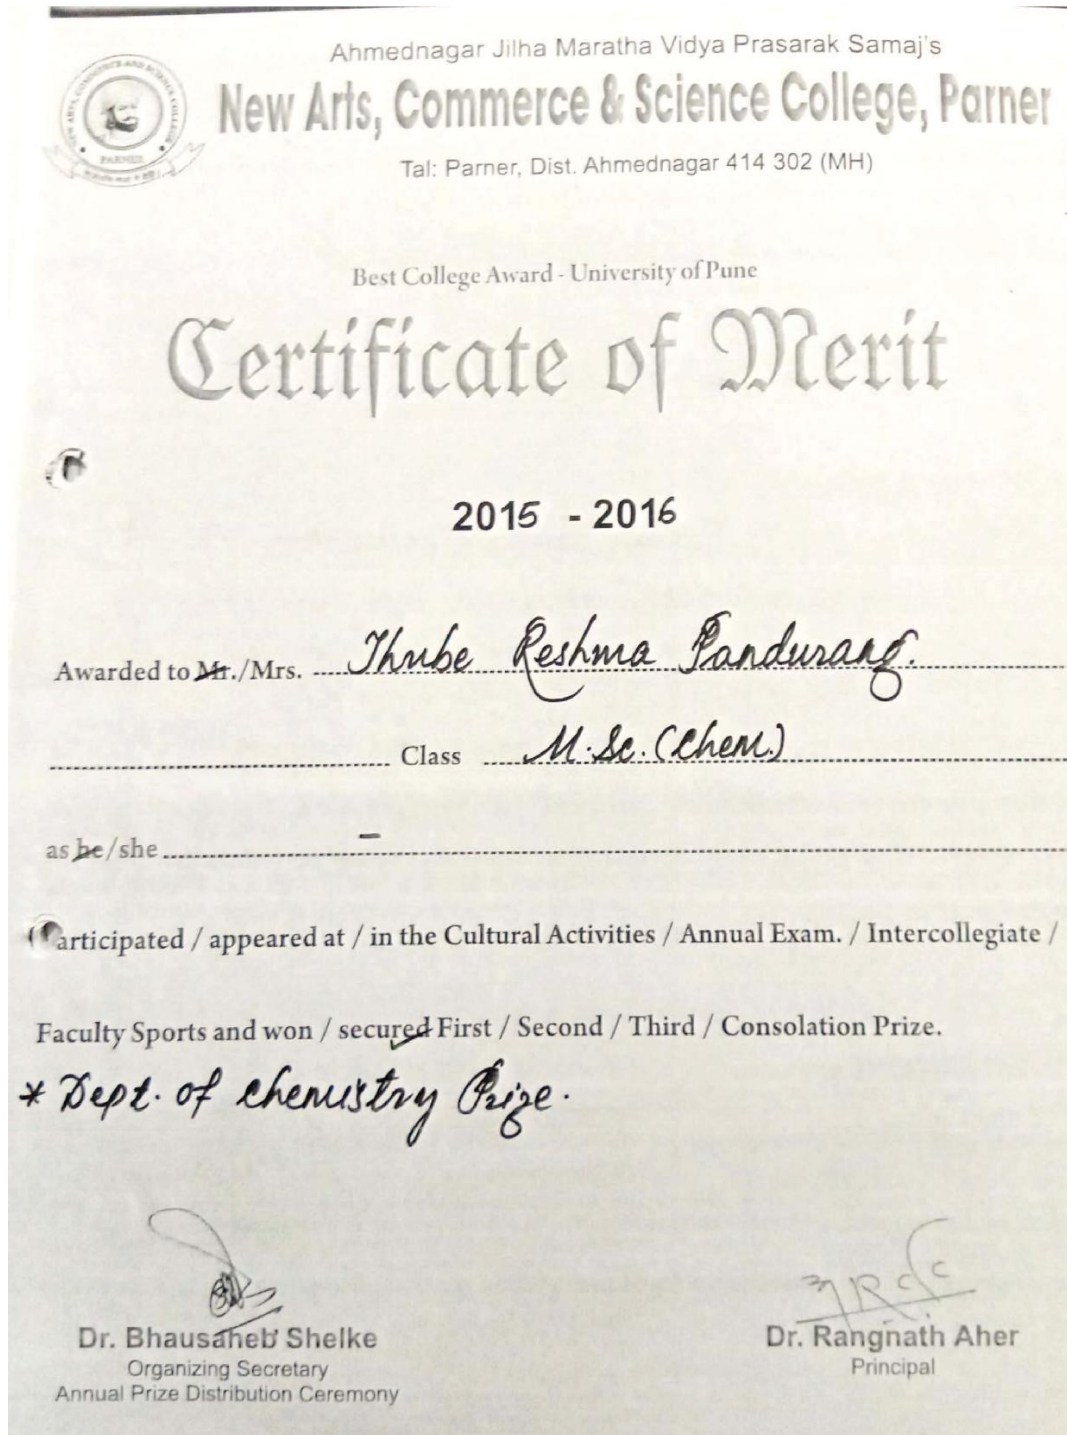 Ahmednagar Jilha Maratha Vidya Prasarak Samaj's
New Arts, Commerce & Science College, Parner
Tal: Parner, Dist. Ahmednagar 414 302 (MH)
NEW ARTS, COMMERCE AND SCIENCE COLLEGE
PARNER
Best College Award - University of Pune
Certificate of Merit
2015 - 2016
Awarded to Mr./Mrs. Thube Reshma Pandurang.
Class M.Sc. (Chem.)
as he/she –
articipated / appeared at / in the Cultural Activities / Annual Exam. / Intercollegiate /
Faculty Sports and won / secured First / Second / Third / Consolation Prize.
* Dept. of chemistry Prize.
Dr. Bhausaheb Shelke
Organizing Secretary
Annual Prize Distribution Ceremony
Dr. Rangnath Aher
Principal